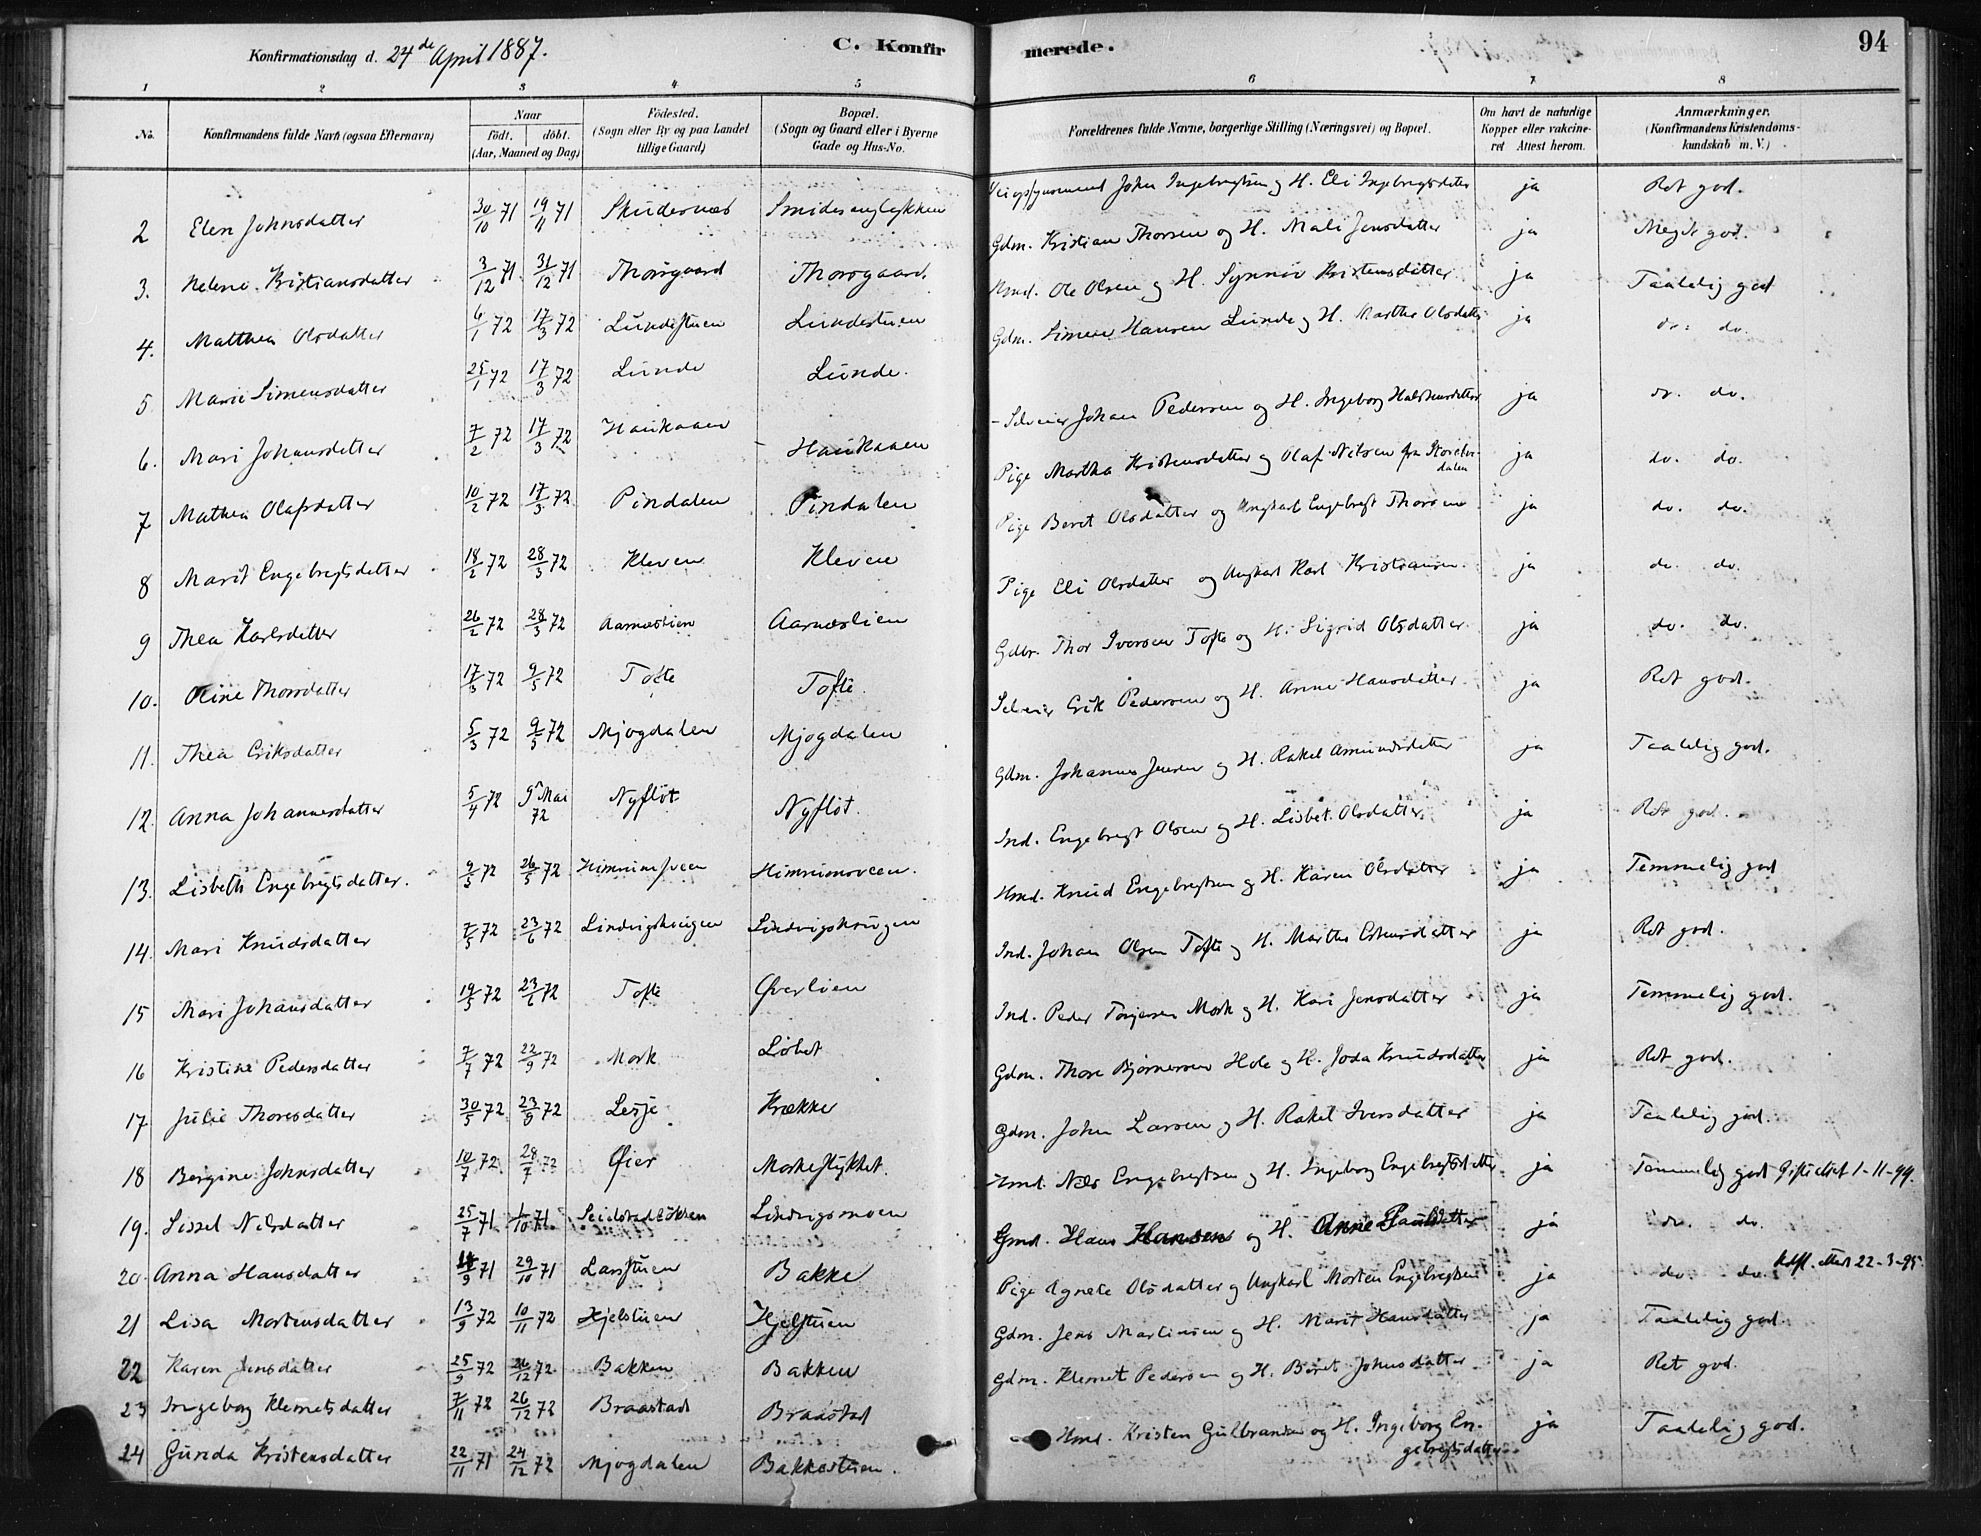 Konfirmationsdag d. 24de April 1887.
C. Konfirmerede.
94
1 2 3 4 5 6 7 8
No. Konfirmandens fulde Navn (ogsaa Efternavn) Naar født. døbt. (Aar, Maaned og Dag) Fødested. (Sogn eller By og paa Landet tillige Gaard) Bopæl. (Sogn og Gaard eller i Byerne Gade og Hus-No. Forældrenes fulde Navne, borgerlige Stilling (Næringsvei) og Bopæl. Om havt de naturlige Kopper eller vakcineret Attest herom. Anmærkninger. (Konfirmandens Kristendomskundskab m. V.)
2 Elen Johnsdatter 30/10 71 19/11 71 Skudernæs Smidesenglykken John Ingebregtsen og H. Eli Ingebregtsdatter ja Ret god.
3. Helene Kristiansdatter 3/12 71 31/12 71 Thorsgaard Thorsgaard. Gdm. Kristian Thorsen og H. Mali Jensdatter ja Meget god.
4. Matthea Olsdatter 6/1 72 17/3 72 Lundestuen Lundestuen Hmd. Ole Olsen og H. Synnøv Kristensdatter ja Taalelig god
5 Marie Simensdatter 25/1 72 17/3 72 Lunde Lunde. Gdm. Simen Hansen Lunde og H. Marthe Olsdatter ja do. do.
6. Mari Johansdatter 7/2 72 17/3 72 Haukaaen Haukaaen Selveier Johan Pedersen og H. Ingeborg Halstensdatter ja do. do.
7 Mathea Olafsdatter 10/2 72 17/3 72 Pindalen Pindalen Pige Martha Kristensdatter og Olaf Nilsen fra ja do. do.
8 Marit Engebregtsdatter 18/2 72 28/3 72 Kleven Kleven Pige Beret Olsdatter og Ungkarl Engebregt Thorsen ja do. do.
9 Thea Karlsdatter 26/2 72 28/3 72 Aarnæslien Aarnæslien Pige Eli Olsdatter og Ungkarl Karl Kristiansen. ja do. do.
10. Oline Thorsdatter 17/3 72 9/5 72 Tofte Tofte. Gdbr. Thor Iversen Tofte og H. Sigrid Olsdatter. ja do. do.
11. Thea Eriksdatter 5/3 72 9/5 72 Mjogdalen Mjogdalen Selveier Erik Pedersen og H. Anne Hansdatter. ja Ret god.
12. Anna Johannesdatter 5/4 72 9 Mai 72 Nyfløt Nyfløt. Gdm. Johannes Jensen og H. Rakel Amundsdatter ja Taalelig god.
13. Lisbeth Engebregtsdatter. 9/5 72 26/5 72 Himrumsveen Himrumsveen. Ind. Engebregt Olsen og H. Lisbet Olsdatter. ja Ret god.
14. Mari Knudsdatter 7/5 72 23/6 72 Lindvigshaugen Lindvigshaugen Hmd. Knud Engebregtsen og H. Karen Olsdatter ja Temmelig god
15 Mari Johansdatter 19/5 72 23/6 72 Tofte Øverlien Ind. Johan Olsen Tofte og H. Marthe Estensdatter ja Ret god.
16 Kristine Pedersdatter 7/7 72 22/9 72 Mork Løbet Ind. Peder Torgersen Mork og H. Kari Jensdatter ja Temmelig god.
17 Julie Thoresdatter 30/5 72 23/9 72 Lesje Krække Gdm. Thore Bjørnersen Hole og H. Joda Knudsdatter ja Ret god.
18 Bergine Johnsdatter 10/7 72 28/7 72 Øier Morkestykket. Gdm. John Larsen og H. Rakel Iversdatter ja Taalelig god.
19. Sissel Nilsdatter 25/7 71 1/10 71 Lindvigsmoen Hmd. Nils Engebregtsen og H. Ingeborg Engebregtsdatter ja Temmelig god Gifteattest 1-11-99.
20. Anna Hansdatter 9 71 29/10 71 Larsstuen Bakke Gmd. Hans Hansen og H. Anne Paulsdatter ja do. do.
21 Lisa Mortensdatter 13/9 72 10/11 72 Hjelstuen Hjelstuen Pige Agnete Olsdatter og Ungkarl Morten Engebregtsen ja do. do. Kdft. attest 22-3-95
22 Karen Jensdatter 25/9 72 26/12 72 Bakken Bakken Gdm. Jens Martinsen og H. Marit Hansdatter ja Taalelig god.
23 Ingeborg Klemetsdatter 7/11 72 26/12 72 Braastad Braastad Gdm. Klemet Pedersen og H. Beret Johnsdatter ja Ret god.
24 Gunda Kristensdatter 22/11 71 24/12 72 Mjogdalen Bakkestuen. Hmd. Kristen Gulbrandsen og H. Ingeborg Engebregtsdatter ja Taalelig god.